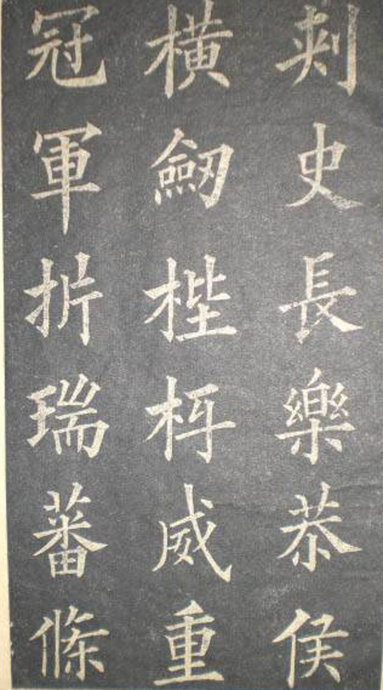 刺史長樂恭侯
橫劒梐枑威重
冠軍析瑞蕃條